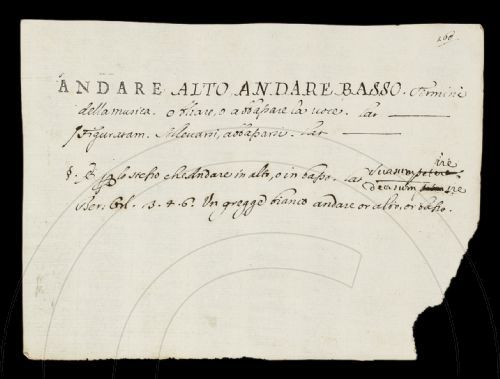 168.
ANDARE ALTO ANDARE BASSO. Termini
della musica. o Alzare, o abbassare la voce. Lat
§ Figuratam. Allevarsi, abbassarsi. Lat
§. P lo stesso che Andare in alto, o in basso. Lat sursum ire
deorsum ire
Ber. Orl. 3. 4. 6. Un gregge bianco andare or alto, or basso.